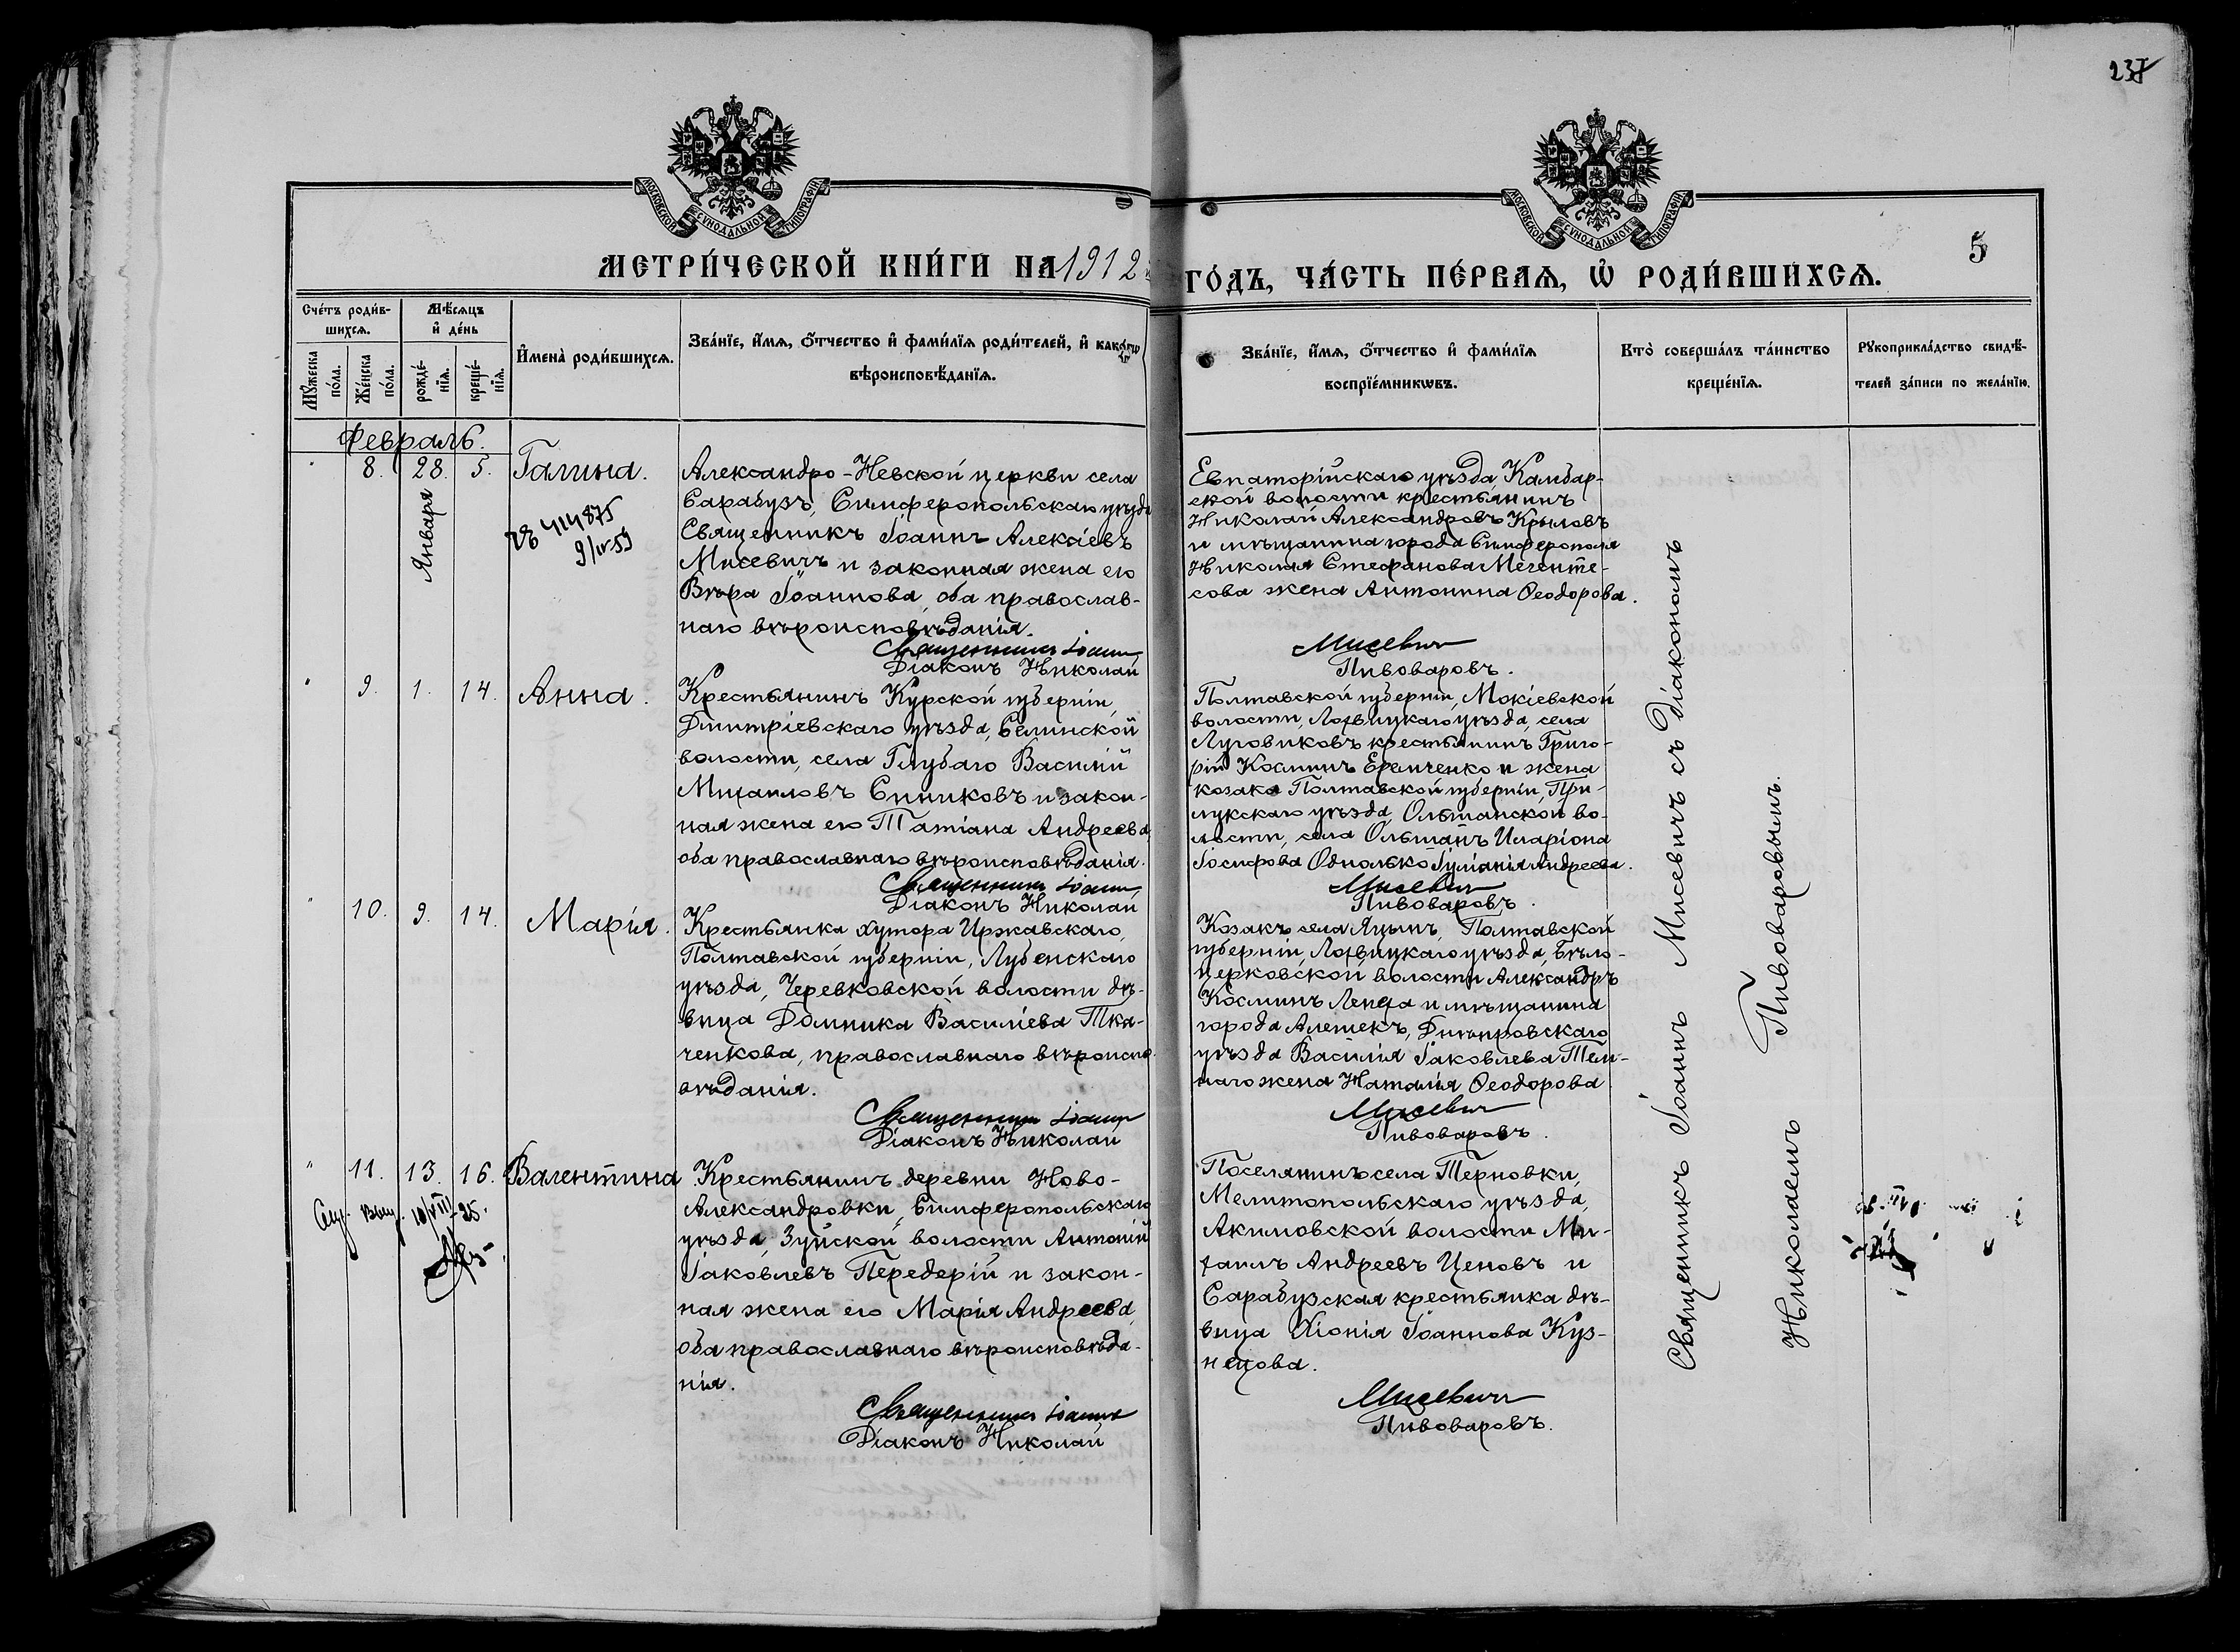 237
МОСКОВСКОЙ СѴНОДАЛЬНОЙ ТИПОГРАФІИ
МОСКОВСКОЙ СѴНОДАЛЬНОЙ ТИПОГРАФІИ
МЕТРИ́ЧЕСКОЙ КНИ́ГИ НА 1912 ГО́ДЪ, ЧА́СТЬ ПЕ́РВАѦ, Ѡ҆ РОДИ́ВШИХСѦ.
5
Сче́тъ роди́в-
шихсѧ.
Мѣ́сѧцъ
и҆ де́нь
Мꙋ́жеска
по́ла.
Же́нска
по́ла.
рожде́-
нїѧ.
креще́-
нїѧ.
И҆мена̀ роди́вшихсѧ.
Зва́нїе, и҆́мѧ, ѻ҆́тчество и҆ фами́лїѧ роди́телей, и҆ како́гѡ
вѣроисповѣ́данїѧ.
Зва́нїе, и҆́мѧ, ѻ҆́тчество и҆ фами́лїѧ
воспрїе́мникѡвъ.
Кто̀ соверша́лъ та́инство
креще́нїѧ.
Рꙋкоприкла́дство свидѣ́-
телей за́писи по жела́нїю.
Февраль.
" 8. 28. 5. Галина.
Января
414875
9/IV 59
Александро-Невской церкви села
Сарабузъ, Симферопольскаго уѣзда
Священникъ Іоаннъ Алексіевъ
Мисевичъ и законная жена его
Вѣра Іоаннова, оба православ-
наго вѣроисповѣданія.
Священникъ Іоаннъ
Діаконъ Николай
Евпаторійскаго уѣзда, Камбар-
ской волости крестьянинъ
Николай Александровъ Крыловъ
и мѣщанина города Симферополя
Николая Стефанова Мегенте-
сова жена Антонина Ѳеодорова.
Мисевичъ
Пивоваровъ.
" 9. 1. 14. Анна.
Крестьянинъ Курской губерніи,
Дмитріевскаго уѣзда, Селинской
волости, села Глубаго Василій
Михаиловъ Синиковъ и закон-
ная жена его Татіана Андреева,
оба православнаго вѣроисповѣданія.
Священникъ Іоаннъ
Діаконъ Николай
Полтавской губерніи, Мокіевской
волости, Лохвицкаго уѣзда, села
Луговиковъ крестьянинъ Григо-
рій Косминъ Еремченко и жена
козака Полтавской губерніи, При-
лукскаго уѣзда, Ольшанской во-
лости, села Ольшанъ Иларіона
Іосифова Однолько Іуліанія Андреева.
Мисевичъ
Пивоваровъ.
" 10. 9. 14. Марія.
Крестьянка хутора Иржавскаго,
Полтавской губерніи, Лубенскаго
уѣзда, Черевковской волости дѣ-
вица Домника Василіева Тка-
ченкова, православнаго вѣроиспо-
вѣданія.
Священникъ Іоаннъ
Діаконъ Николай
Козакъ села Яцынъ, Полтавской
губерніи, Лохвицкаго уѣзда, Бѣло-
церковской волости Александръ
Косминъ Лепеха и мѣщанина
города Алешекъ, Днѣпровскаго
уѣзда Василія Іаковлева Тем-
наго жена Наталія Ѳеодорова
Мисевичъ
Пивоваровъ.
" 11. 13. 16. Валентина
10/VIII-25.
Крестьянинъ деревни Ново-
Александровки, Симферопольскаго
уѣзда, Зуйской волости Антоній
Іаковлевъ Передерій и закон-
ная жена его Марія Андреева,
оба православнаго вѣроисповѣда-
нія.
Священникъ Іоаннъ
Діаконъ Николай
Поселянинъ села Терновки,
Мелитопольскаго уѣзда,
Акимовской волости Ми-
хаилъ Андреевъ Ценовъ и
Сарабузская крестьянка дѣ-
вица Хіонія Іоаннова Куз-
нецова.
Мисевичъ
Пивоваровъ.
Священникъ Іоаннъ Мисевичъ съ діакономъ
Николаемъ Пивоваровымъ.